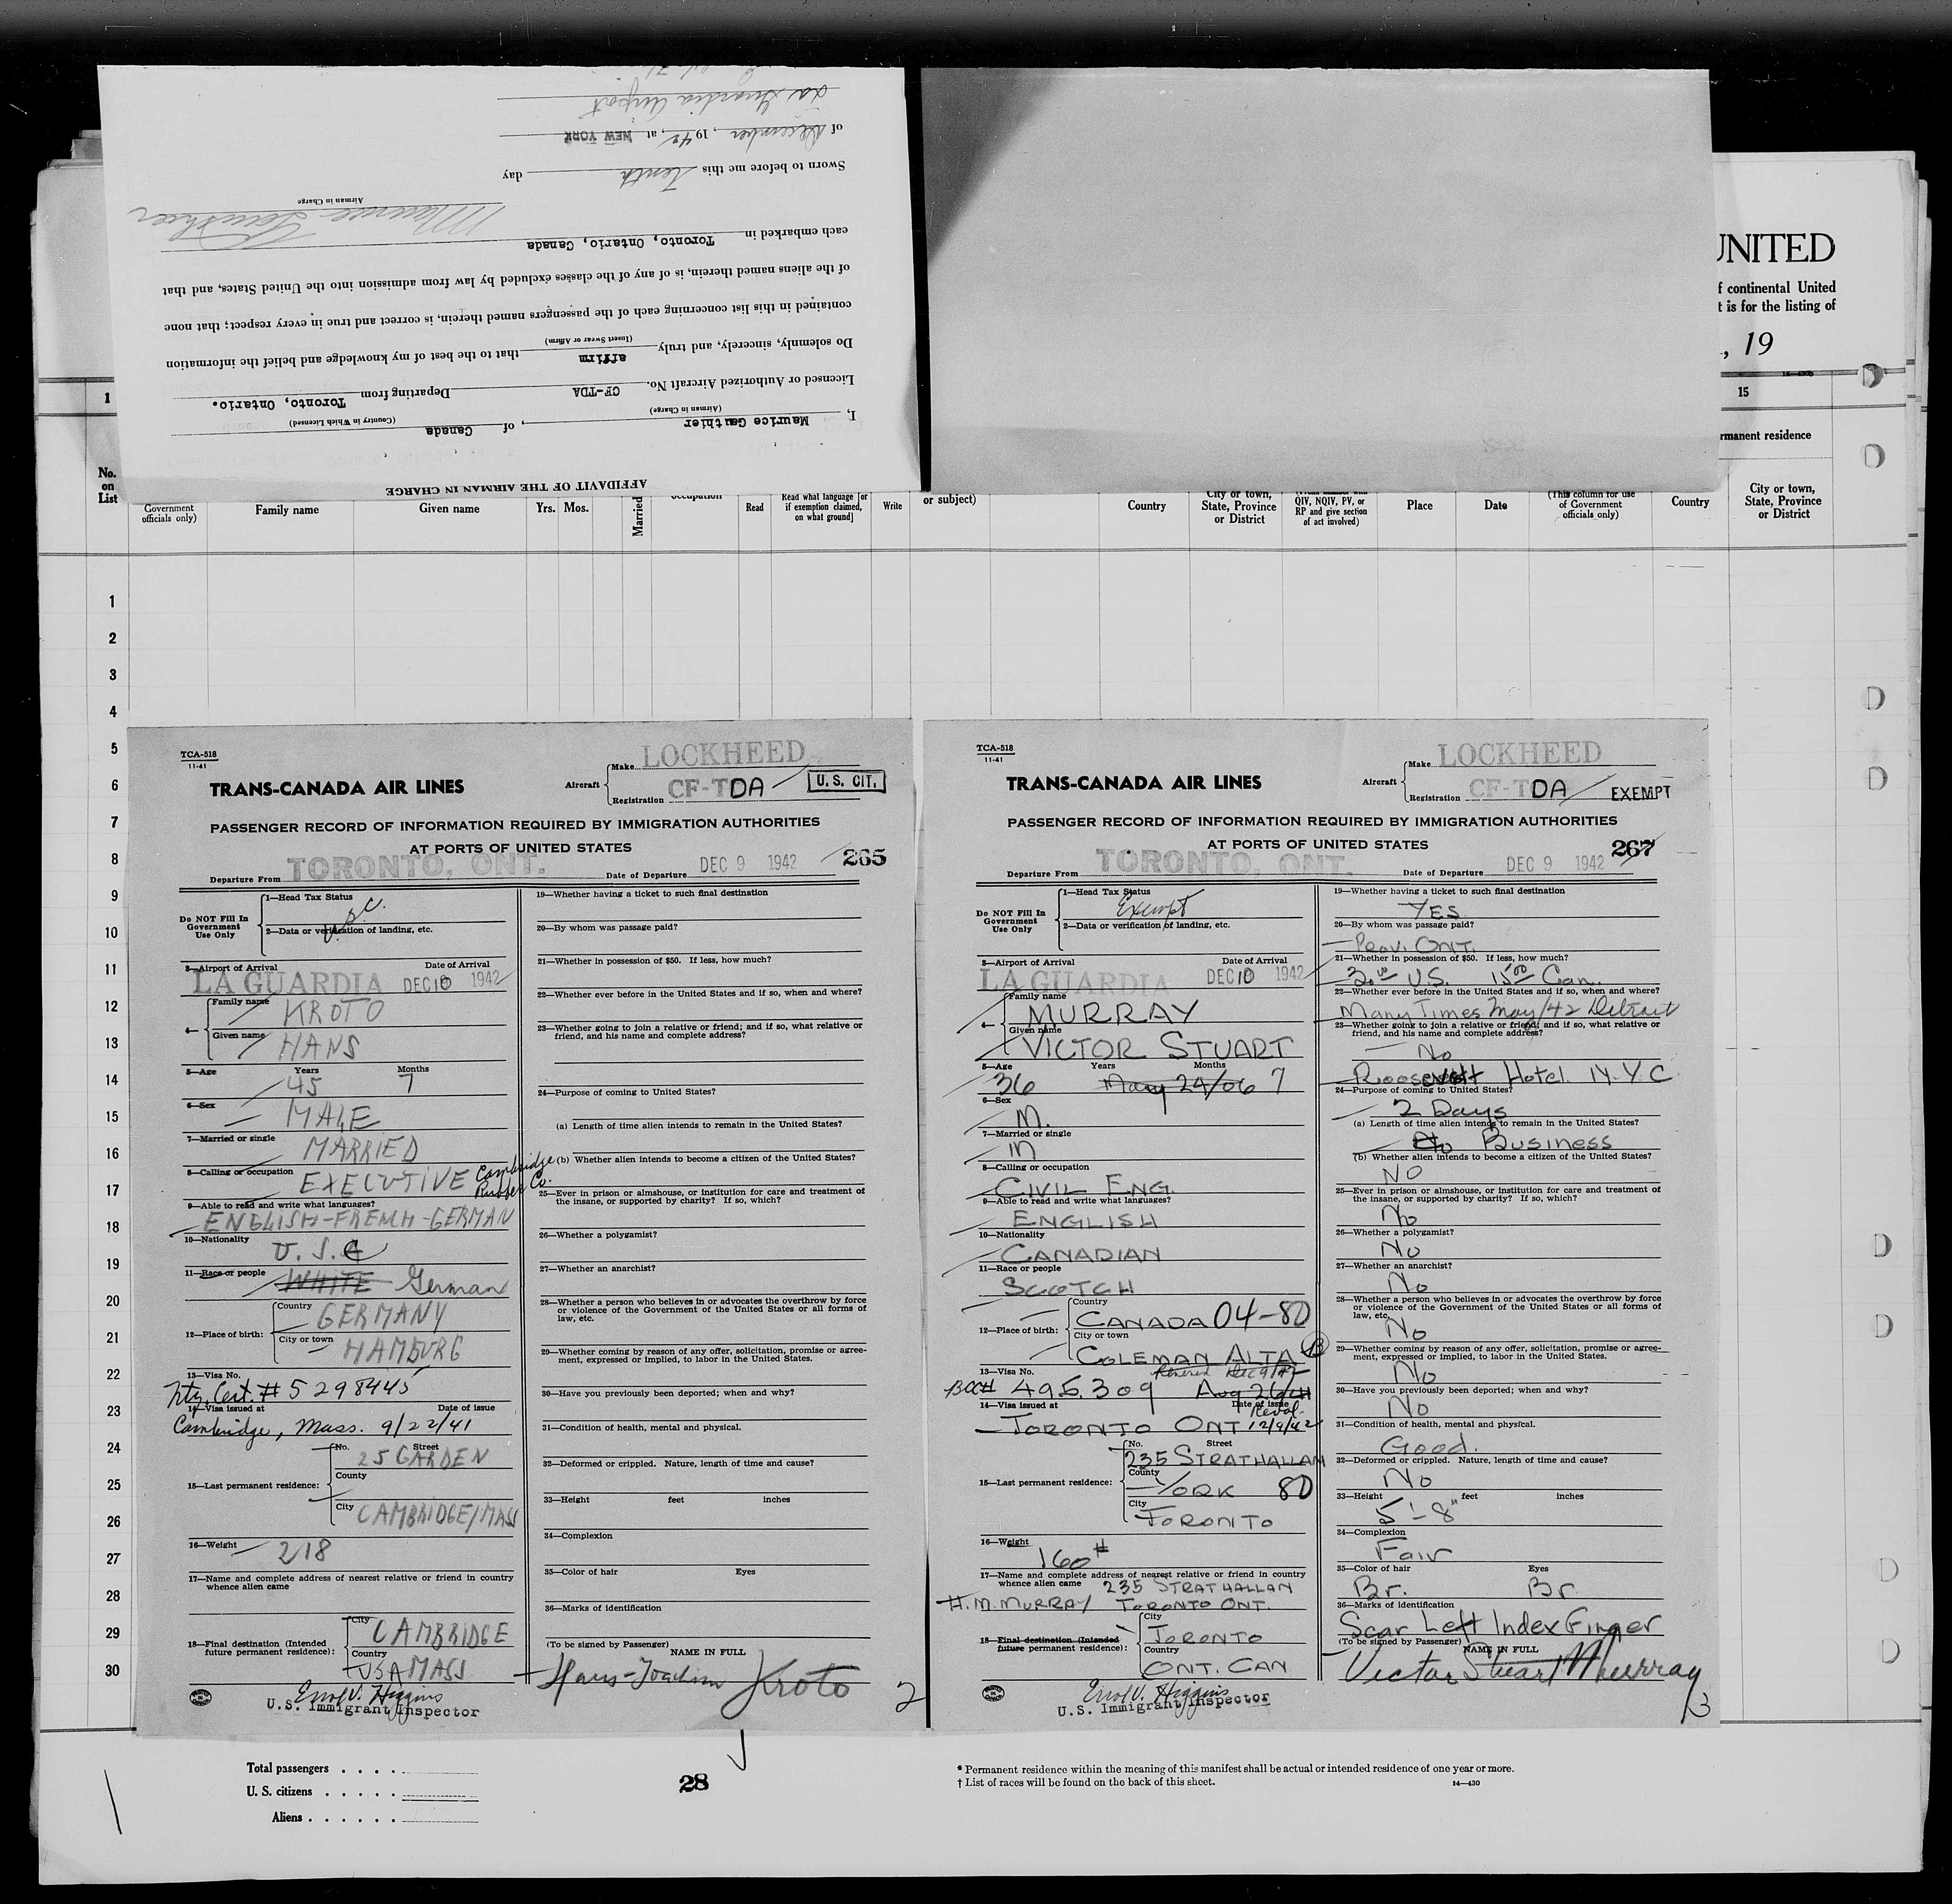 AFFIDAVIT OF THE AIRMAN IN CHARGE
I, Maurice Gauthier, of Canada
(Airman in Charge) (Country in Which Licensed)
Licensed or Authorized Aircraft No. CF-TDA Departing from Toronto, Ontario.
Do solemnly, sincerely, and truly affirm that to the best of my knowledge and belief the information
(Insert Swear or Affirm)
contained in this list concerning each of the passengers named therein, is correct and true in every respect; that none
of the aliens named therein, is of any of the classes excluded by law from admission into the United States, and that
each embarked in Toronto, Ontario, Canada
Maurice Gauthier
Airman in Charge
Sworn to before me this Tenth day
of December, 1942, at NEW YORK
La Guardia Airport
UNITED
f continental United
t is for the listing of
, 19
16-430b
1
15
rmanent residence
No. on List
Government officials only)
Family name
Given name
Yrs. Mos.
Married
occupation
Read
Read what language [or if exemption claimed, on what ground]
Write
or subject)
Country
City or town, State, Province or District
QIV, NQIV, PV, or RP and give section of act involved)
Place
Date
(This column for use of Government officials only)
Country
City or town, State, Province or District
1
2
3
4
5
6
7
8
9
10
11
12
13
14
15
16
17
18
19
20
21
22
23
24
25
26
27
28
29
30
TCA-518
11-41
TRANS-CANADA AIR LINES
Aircraft
Make LOCKHEED
Registration CF-TDA
U. S. CIT.
PASSENGER RECORD OF INFORMATION REQUIRED BY IMMIGRATION AUTHORITIES
AT PORTS OF UNITED STATES
265
Departure From TORONTO, ONT. Date of Departure DEC 9 1942
Do NOT Fill In Government Use Only
1—Head Tax Status
2—Data or verification of landing, etc.
3—Airport of Arrival Date of Arrival
LA GUARDIA DEC 10 1942
4— Family name KROTO
Given name HANS
5—Age Years Months
45 7
6—Sex
MALE
7—Married or single
MARRIED
8—Calling or occupation
EXECUTIVE Cambridge Rubber Co.
9—Able to read and write what languages?
ENGLISH-FRENCH-GERMAN
10—Nationality
U.S.C
11—Race or people
WHITE German
12—Place of birth:
Country GERMANY
City or town HAMBURG
13—Visa No.
Ntz. Cert. # 5298445
14—Visa issued at Date of issue
Cambridge, Mass. 9/22/41
15—Last permanent residence:
No. Street
25 GARDEN
County
City CAMBRIDGE/MASS
16—Weight 218
17—Name and complete address of nearest relative or friend in country whence alien came
18—Final destination (Intended future permanent residence):
City CAMBRIDGE
Country USA MASS
Errol V. Higgins
U.S. Immigrant Inspector
19—Whether having a ticket to such final destination
20—By whom was passage paid?
21—Whether in possession of $50. If less, how much?
22—Whether ever before in the United States and if so, when and where?
23—Whether going to join a relative or friend; and if so, what relative or friend, and his name and complete address?
24—Purpose of coming to United States?
(a) Length of time alien intends to remain in the United States?
(b) Whether alien intends to become a citizen of the United States?
25—Ever in prison or almshouse, or institution for care and treatment of the insane, or supported by charity? If so, which?
26—Whether a polygamist?
27—Whether an anarchist?
28—Whether a person who believes in or advocates the overthrow by force or violence of the Government of the United States or all forms of law, etc.
29—Whether coming by reason of any offer, solicitation, promise or agreement, expressed or implied, to labor in the United States.
30—Have you previously been deported; when and why?
31—Condition of health, mental and physical.
32—Deformed or crippled. Nature, length of time and cause?
33—Height feet inches
34—Complexion
35—Color of hair Eyes
36—Marks of identification
(To be signed by Passenger) NAME IN FULL
Hans-Joachim Kroto
2
TCA-518
11-41
TRANS-CANADA AIR LINES
Aircraft
Make LOCKHEED
Registration CF-TDA
EXEMPT
PASSENGER RECORD OF INFORMATION REQUIRED BY IMMIGRATION AUTHORITIES
AT PORTS OF UNITED STATES
267
Departure From TORONTO, ONT. Date of Departure DEC 9 1942
Do NOT Fill In Government Use Only
1—Head Tax Status
Exempt
2—Data or verification of landing, etc.
3—Airport of Arrival Date of Arrival
LA GUARDIA DEC 10 1942
4— Family name
MURRAY
Given name
VICTOR STUART
5—Age Years Months
36 May 24/06 7
6—Sex
M.
7—Married or single
M
8—Calling or occupation
CIVIL ENG.
9—Able to read and write what languages?
ENGLISH
10—Nationality
CANADIAN
11—Race or people
SCOTCH
12—Place of birth:
Country
CANADA 04-80
City or town
COLEMAN ALTA B
13—Visa No.
BCC# 495309
14—Visa issued at Date of issue
TORONTO ONT 12/9/42
15—Last permanent residence:
No. Street
235 STRATHALLAN
County
YORK 80
City
TORONTO
16—Weight
160#
17—Name and complete address of nearest relative or friend in country whence alien came 235 STRATHALLAN
H.M. MURRAY TORONTO ONT.
18—Final destination (Intended future permanent residence):
City
TORONTO
Country
ONT. CAN
Errol V. Higgins
U.S. Immigrant Inspector
19—Whether having a ticket to such final destination
YES
20—By whom was passage paid?
Prov. ONT.
21—Whether in possession of $50. If less, how much?
U.S. 15.00 Can.
22—Whether ever before in the United States and if so, when and where?
Many Times May/42 Detroit
23—Whether going to join a relative or friend; and if so, what relative or friend, and his name and complete address?
No
Roosevelt Hotel N.Y.C
24—Purpose of coming to United States?
2 Days
(a) Length of time alien intends to remain in the United States?
No Business
(b) Whether alien intends to become a citizen of the United States?
NO
25—Ever in prison or almshouse, or institution for care and treatment of the insane, or supported by charity? If so, which?
No
26—Whether a polygamist?
No
27—Whether an anarchist?
No
28—Whether a person who believes in or advocates the overthrow by force or violence of the Government of the United States or all forms of law, etc.
No
29—Whether coming by reason of any offer, solicitation, promise or agreement, expressed or implied, to labor in the United States.
No
30—Have you previously been deported; when and why?
No
31—Condition of health, mental and physical.
Good.
32—Deformed or crippled. Nature, length of time and cause?
No
33—Height feet inches
5'-8"
34—Complexion
Fair
35—Color of hair Eyes
Br. Br
36—Marks of identification
Scar Left Index Finger
(To be signed by Passenger) NAME IN FULL
Victor Stuart Murray
3
Total passengers . . . .
U. S. citizens . . . . .
Aliens . . . . . .
28
* Permanent residence within the meaning of this manifest shall be actual or intended residence of one year or more.
† List of races will be found on the back of this sheet.
14—430